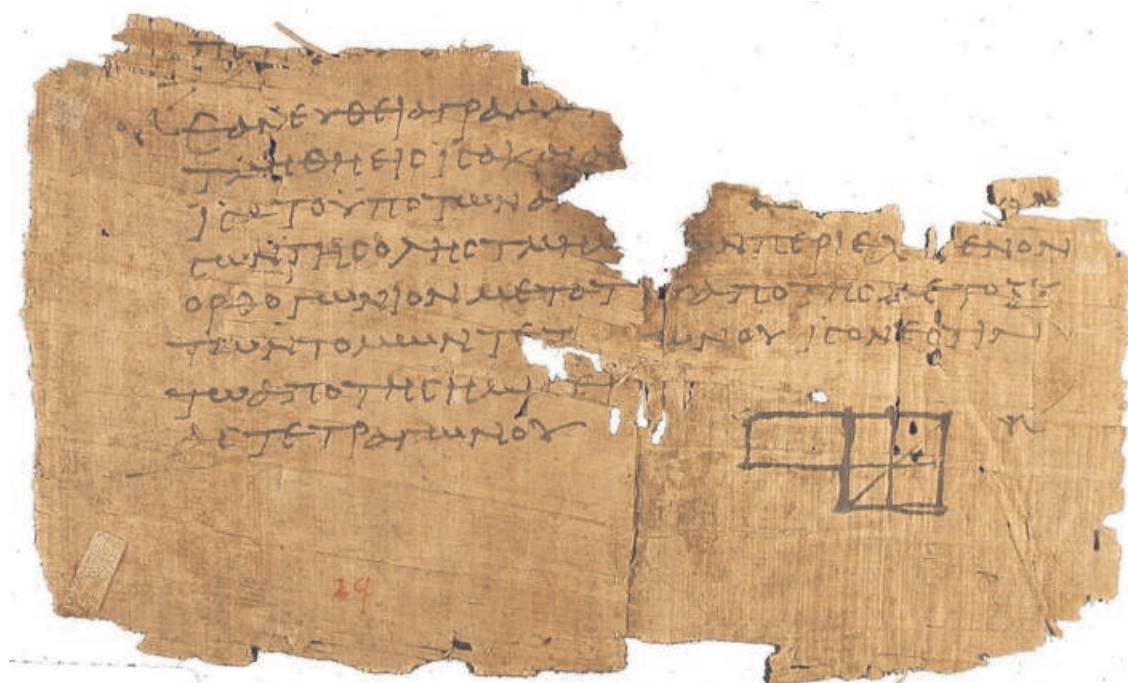 ΕΑΝΕΥΘΕΙΑΓΡΑΜΜ
ΤΜΗΘΗΕΙϹΙϹΑΚΑΙΑ
ΙϹΑΤΟΥΠΟΤΩΝΑ
ϹΩΝΤΗϹΟΛΗϹΤΜΗΜ ΩΝΠΕΡΙΕΧ ΜΕΝΟΝ
ΟΡΘΟΓΩΝΙΟΝΜΕΤΑΤ ΥΑΠΟΤΗϹΜΕΤΟΞΥ
ΤΩΝΤΟΜΩΝΤΕΤ ΩΝΟΥΙϹΟΝΕϹΤΙΝ
ΤΩΑΠΟΤΗϹΗΜΙϹΕΙ
ΑϹΤΕΤΡΑΓΩΝΟΥ
29